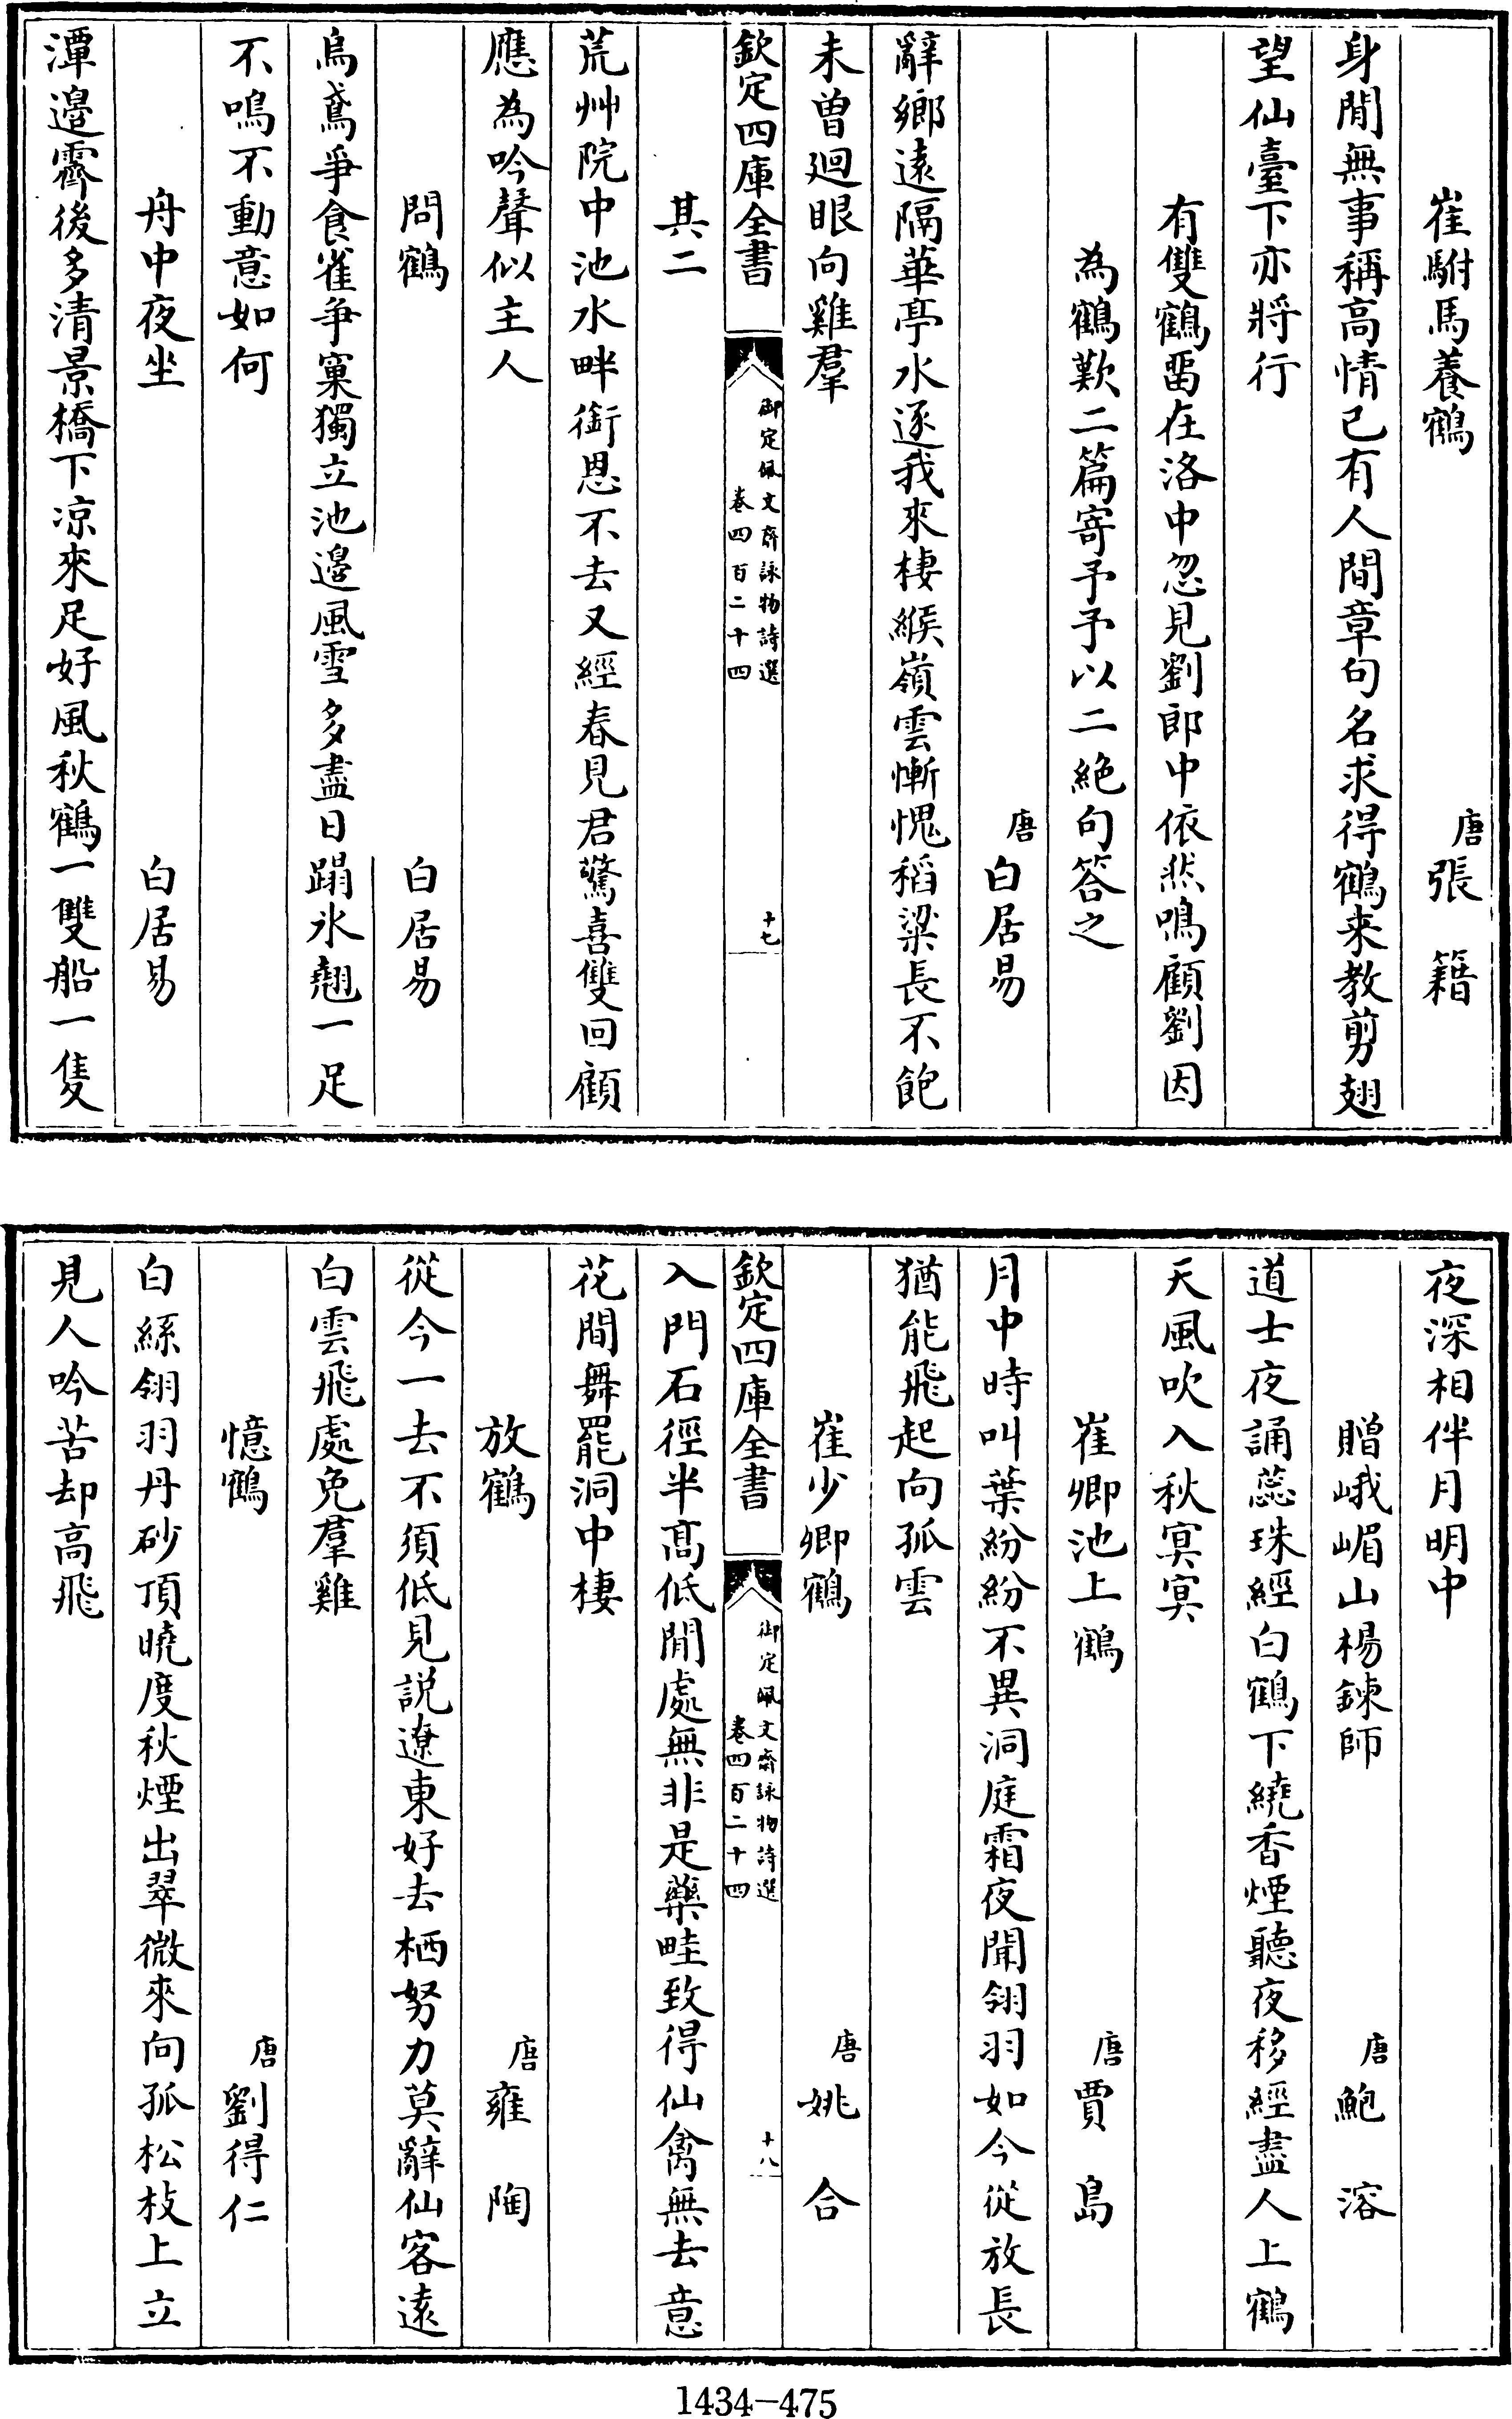 崔駙馬養鶴　唐張　籍
身閒無事稱高情已有人間章句名求得鶴来教剪翅
望仙臺下亦將行
有雙鶴畱在洛中忽見劉郎中依然鳴顧劉因
為鶴歎二篇寄予予以二絶句答之
唐白居易
辭鄉遠隔華亭水逐我來棲緱嶺雲慚愧稻粱長不飽
未曾廻眼向雞羣
欽定四庫全書　御定佩文齋詠物詩選　卷四百二十四　十七
其二
荒艸院中池水畔銜恩不去又經春見君驚喜雙回顧
應為吟聲似主人
問鶴　白居易
烏鳶爭食雀爭窠獨立池邊風雪多盡日蹋氷翹一足
不鳴不動意如何
舟中夜坐　白居易
潭邊霽後多清景橋下凉來足好風秋鶴一雙船一隻
夜深相伴月明中
贈峨嵋山楊鍊師　唐鮑　溶
道士夜誦蕊珠經白鶴下繞香煙聽夜移經盡人上鶴
天風吹入秋冥冥
崔卿池上鶴　唐賈　島
月中時叫葉紛紛不異洞庭霜夜聞翎羽如今從放長
猶能飛起向孤雲
崔少卿鶴　唐姚　合
欽定四庫全書　御定佩文齋詠物詩選　卷四百二十四　十八
入門石徑半髙低閒處無非是藥畦致得仙禽無去意
花間舞罷洞中棲
放鶴　唐雍　陶
從今一去不須低見説遼東好去栖努力莫辭仙客遠
白雲飛處免羣雞
憶鶴　唐劉得仁
白絲翎羽丹砂頂曉度秋煙出翠微來向孤松枝上立
見人吟苦却高飛
1434-475